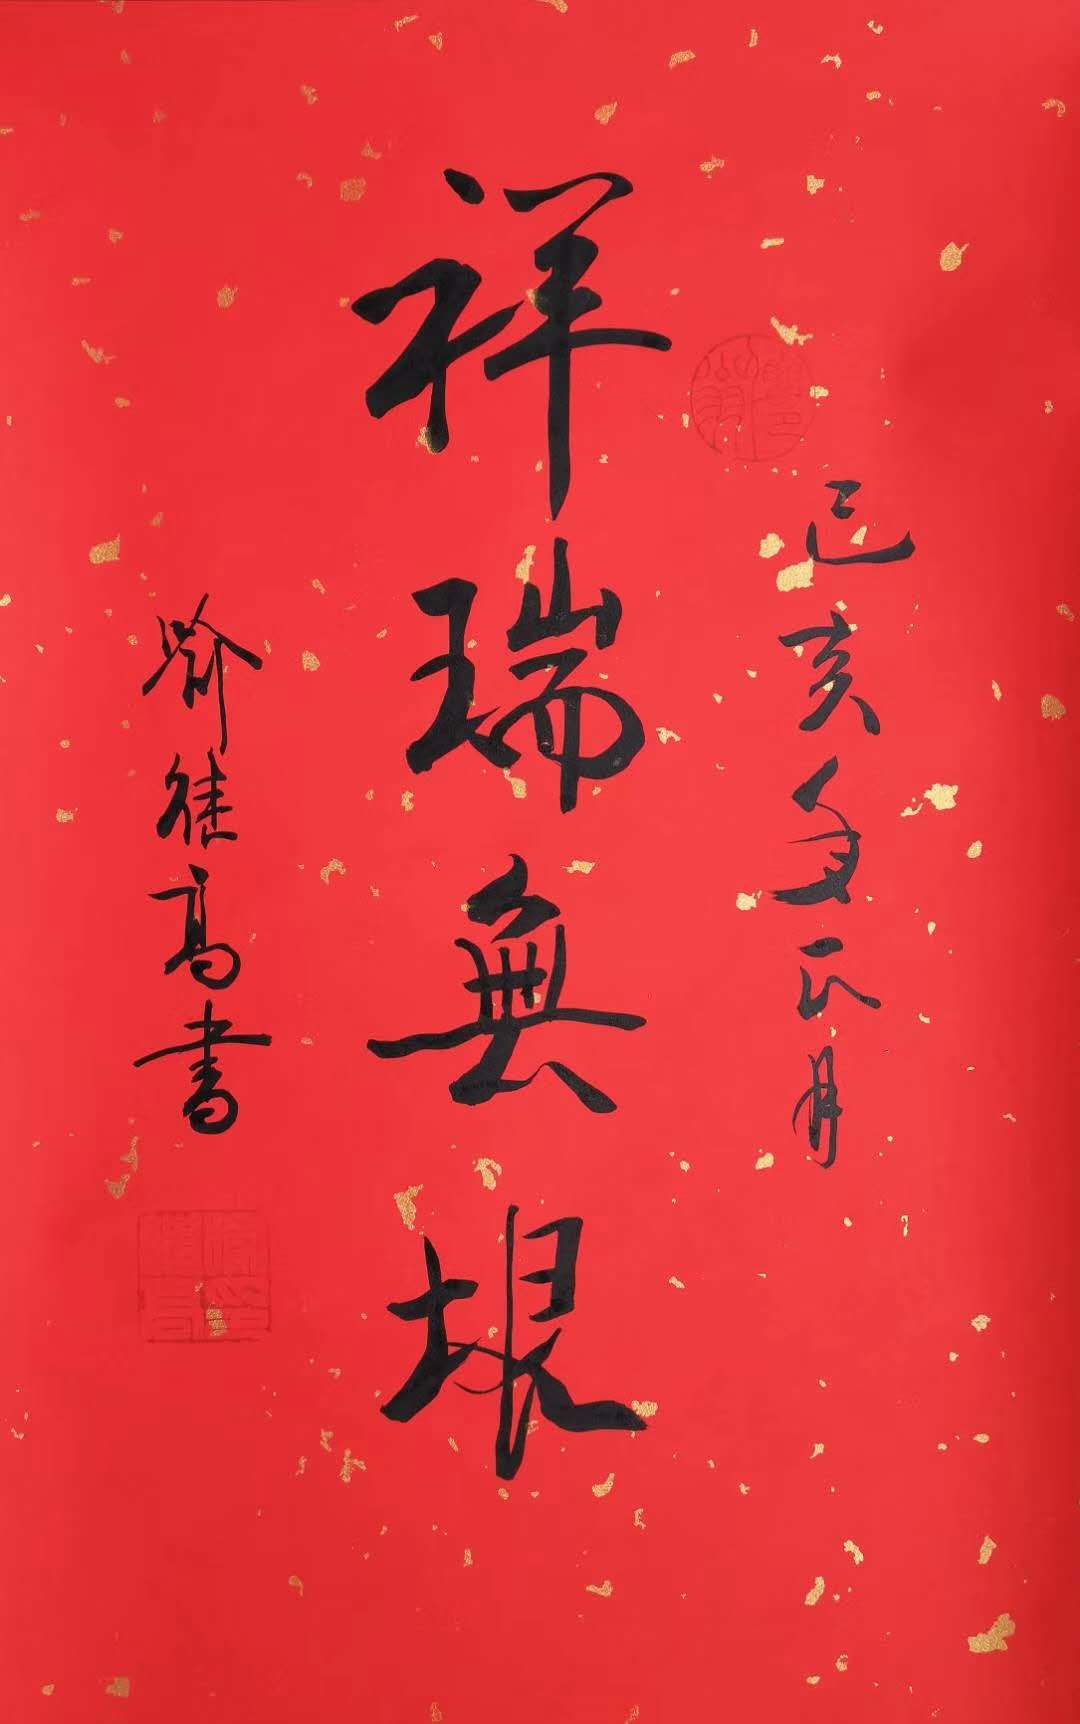 己亥年正月
祥瑞無垠
喻继高書